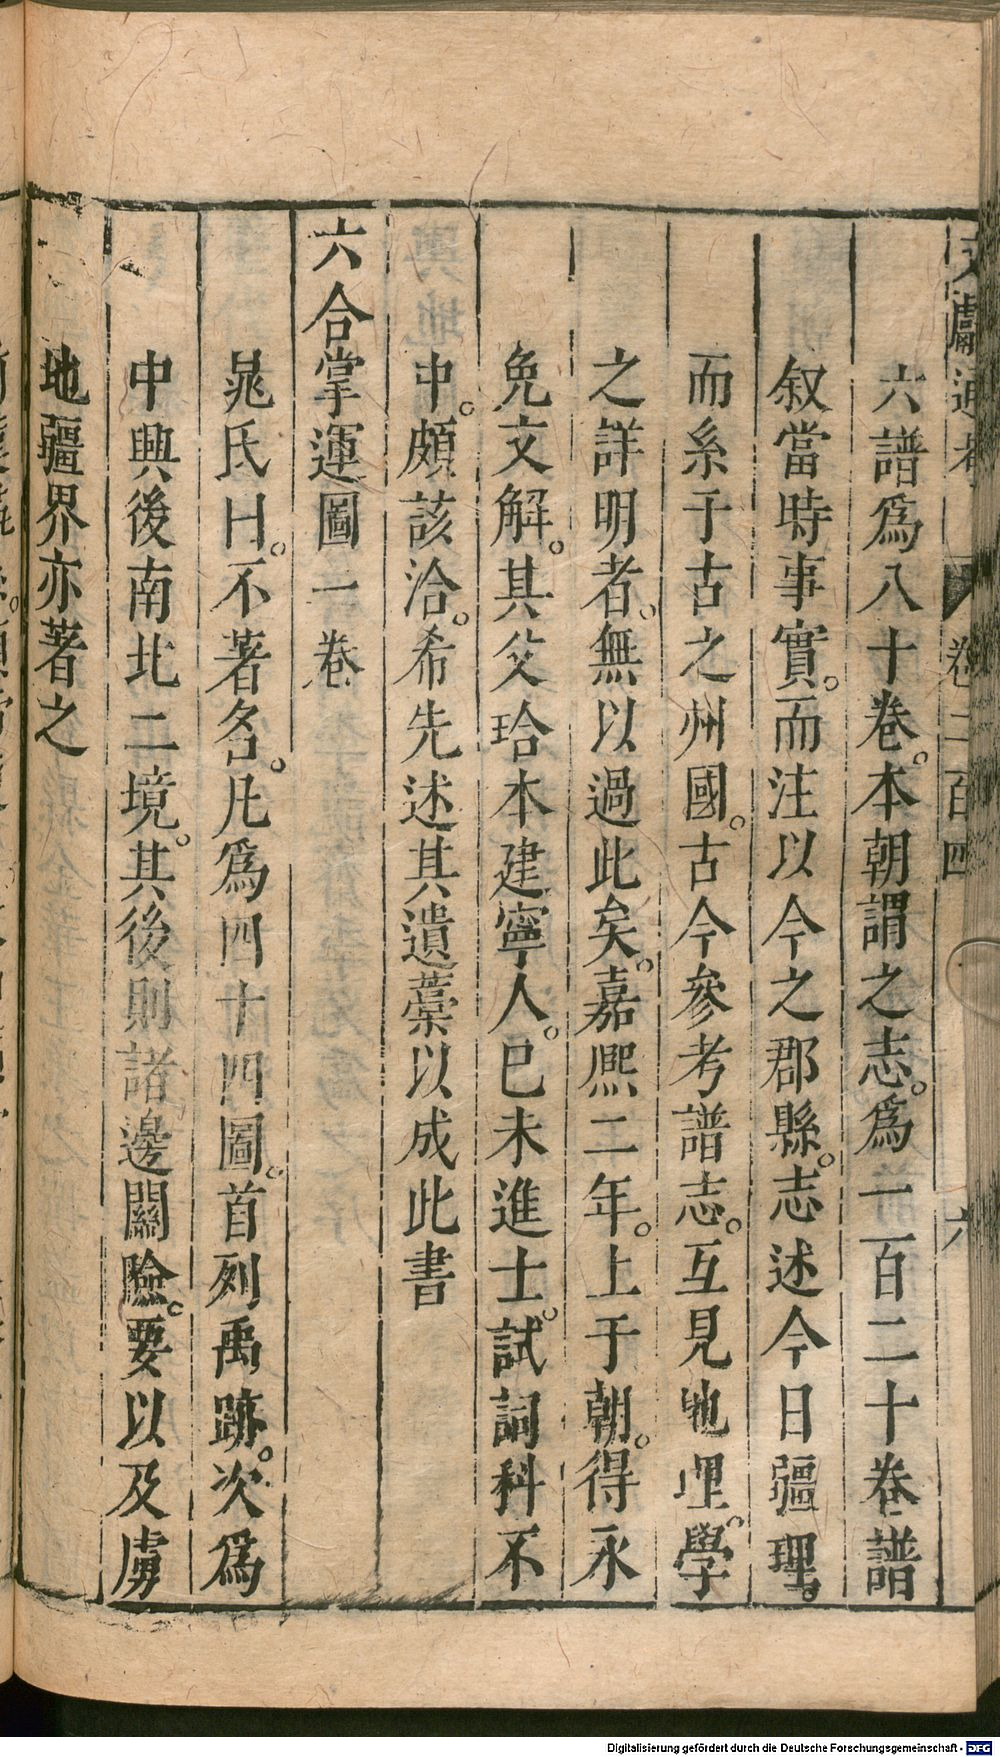 文獻通考 卷二百四 六
六譜爲八十卷。本朝謂之志。爲一百二十卷譜
叙當時事實。而注以今之郡縣。志述今日疆理。
而系于古之州國。古今參考譜志。互見地理。學
之詳明者。無以過此矣。嘉熈二年。上于朝。得永
免文解。其父珨本建寧人。巳未進士。試詞科不
中。頗該洽。希先述其遺藁以成此書
六合掌運圖一卷
晁氏曰。不著名。凡爲四十四圖。首列禹跡。次爲
中興後南北二境。其後則諸邊關險。要以及虜
地疆界亦著之
Digitalisierung gefördert durch die Deutsche Forschungsgemeinschaft - DFG